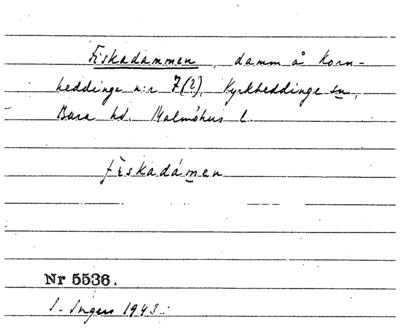 Fiskadammen, damm å Korn-
heddinge n:r 7(?), Kyrkheddinge sn,
Bara hd. Malmöhus l.
fiskadámen
Nr 5536.
I. Ingers 1943.